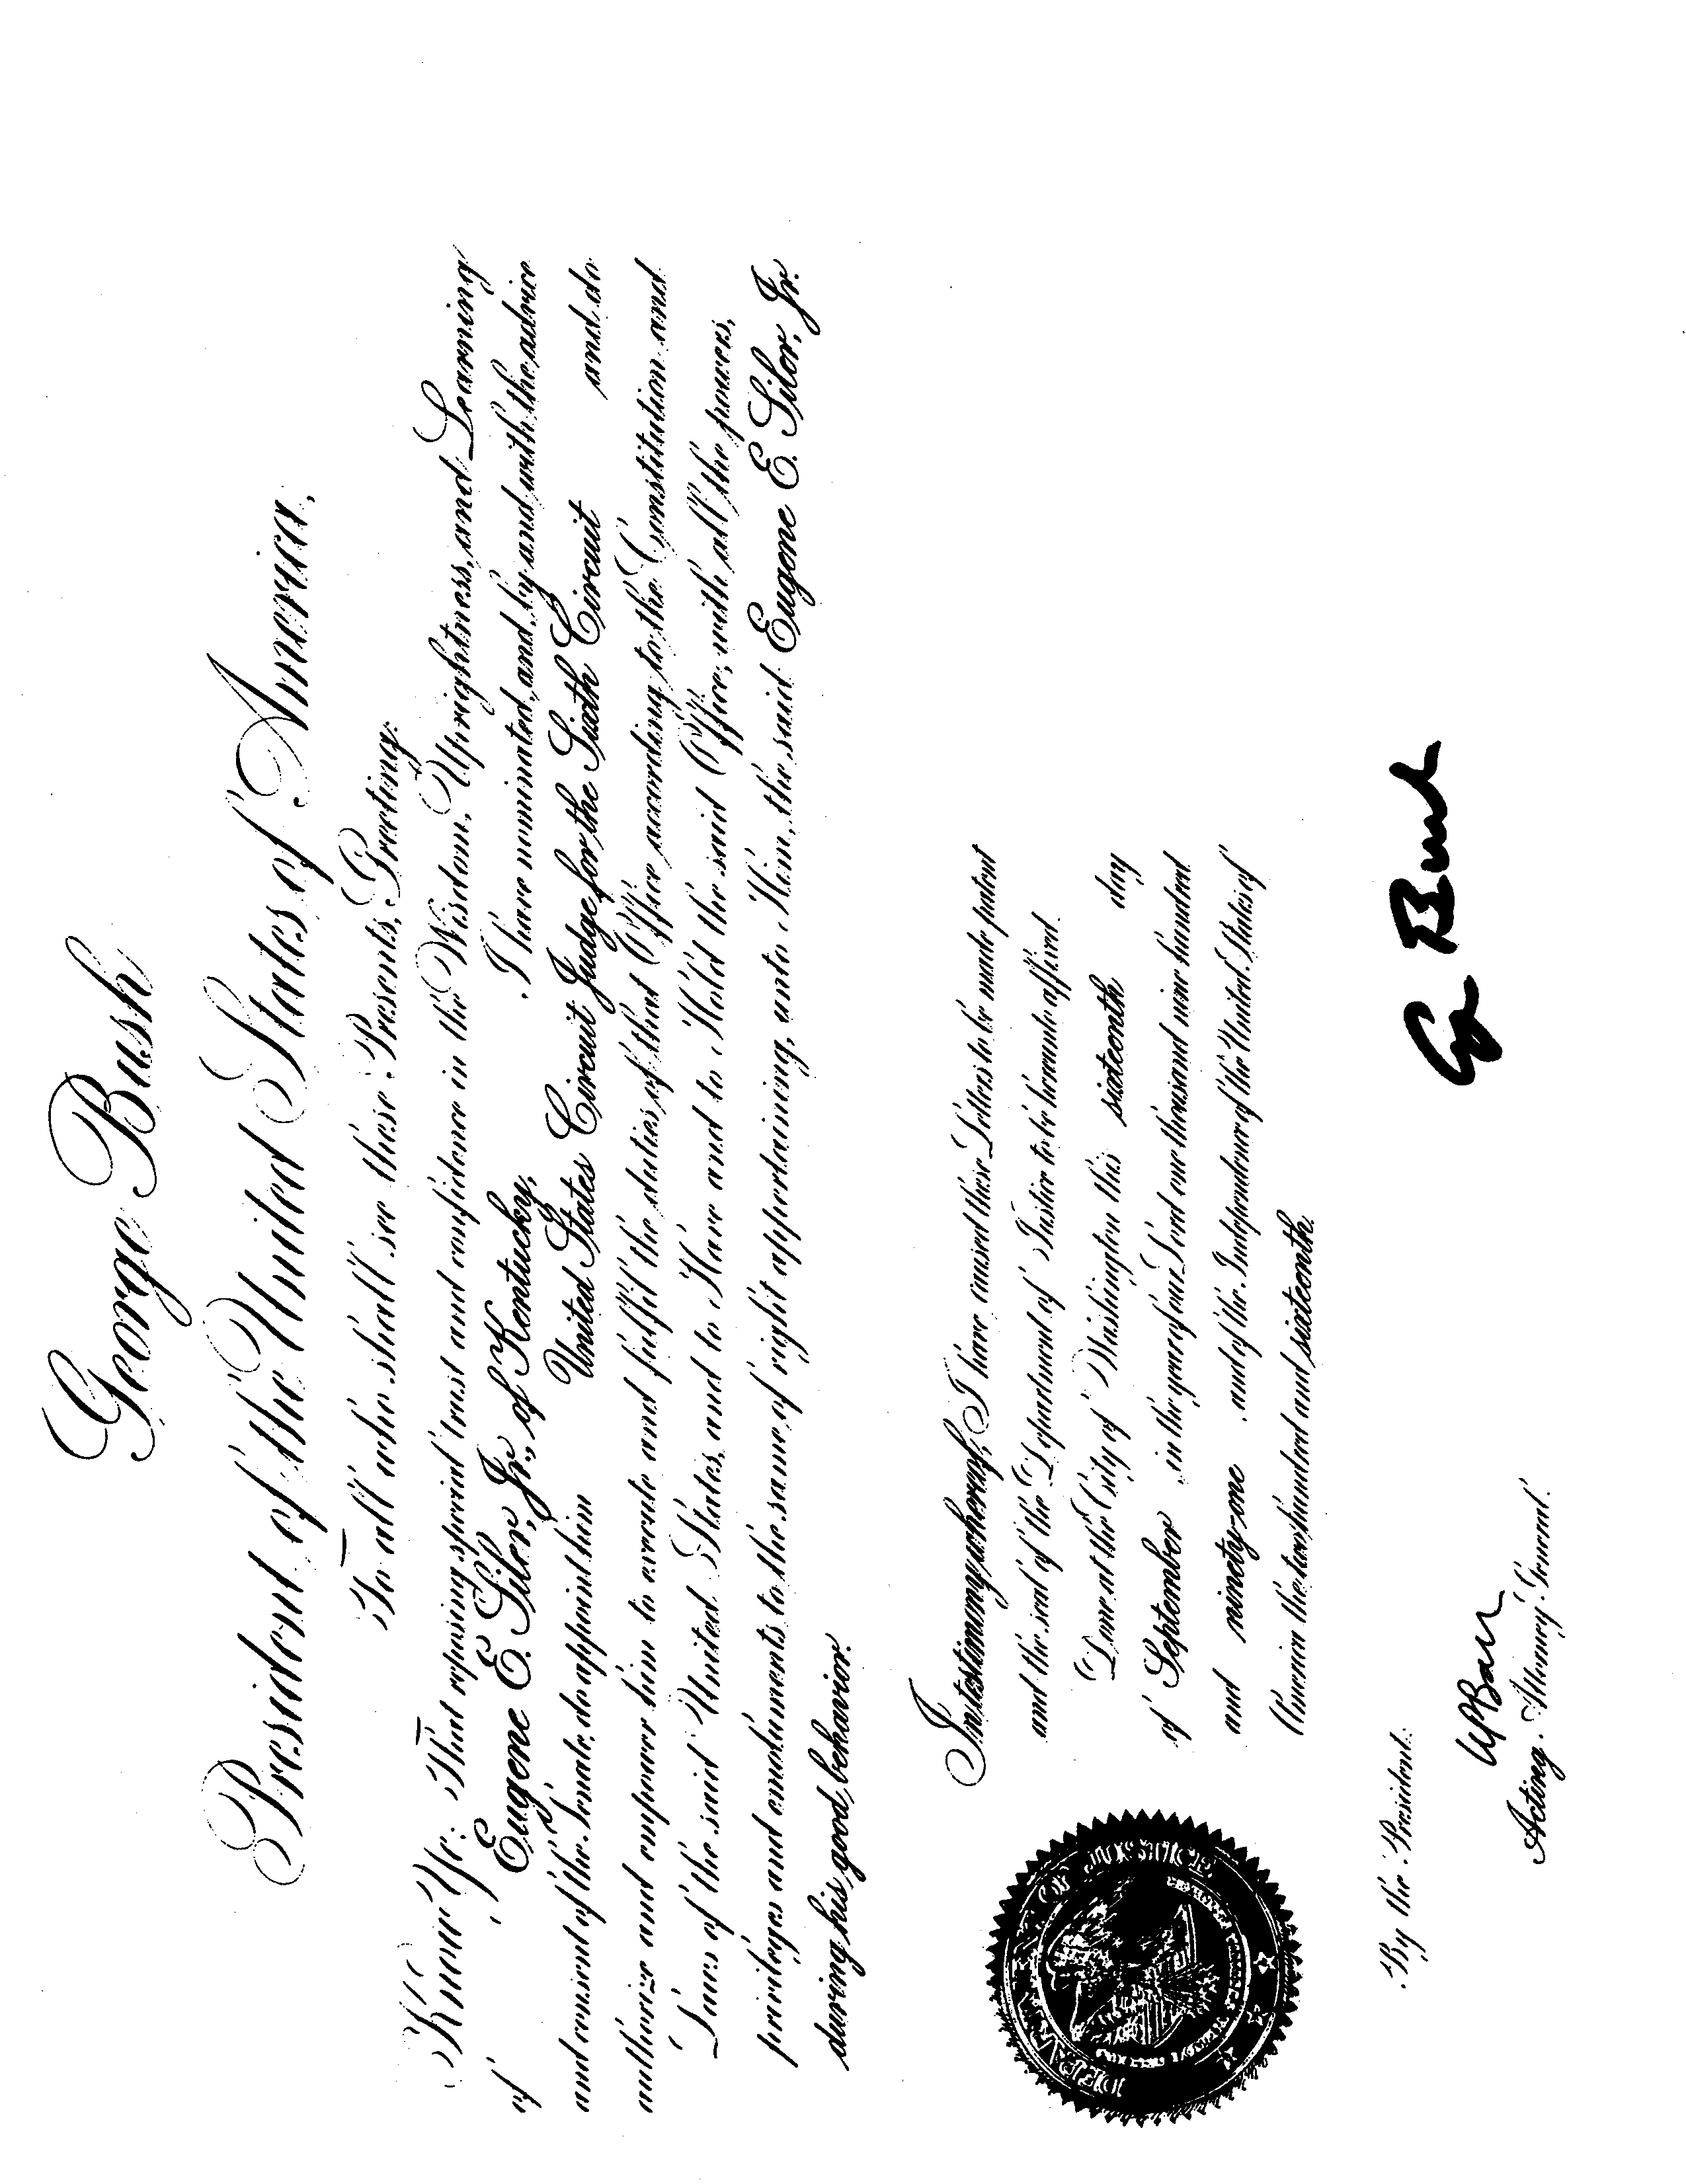 George Bush
President of the United States of America,
To all who shall see these Presents, Greeting:
Know Ye: That reposing special trust and confidence in the Wisdom, Uprightness, and Learning
of Eugene E. Siler, Jr., of Kentucky, I have nominated, and, by and with the advice
and consent of the Senate, do appoint him United States Circuit Judge for the Sixth Circuit and do
authorize and empower him to execute and fulfil the duties of that Office according to the Constitution and
Laws of the said United States, and to Have and to Hold the said Office, with all the powers,
privileges and emoluments to the same of right appertaining, unto Him, the said Eugene E. Siler, Jr.
during his good behavior.
In testimony whereof, I have caused these Letters to be made patent
and the seal of the Department of Justice to be hereunto affixed.
Done at the City of Washington this sixteenth day
of September in the year of our Lord one thousand nine hundred
and ninety-one and of the Independence of the United States of
America the two hundred and sixteenth.
G Bush
By the President:
WPBarr
Acting Attorney General.
OF JUSTICE